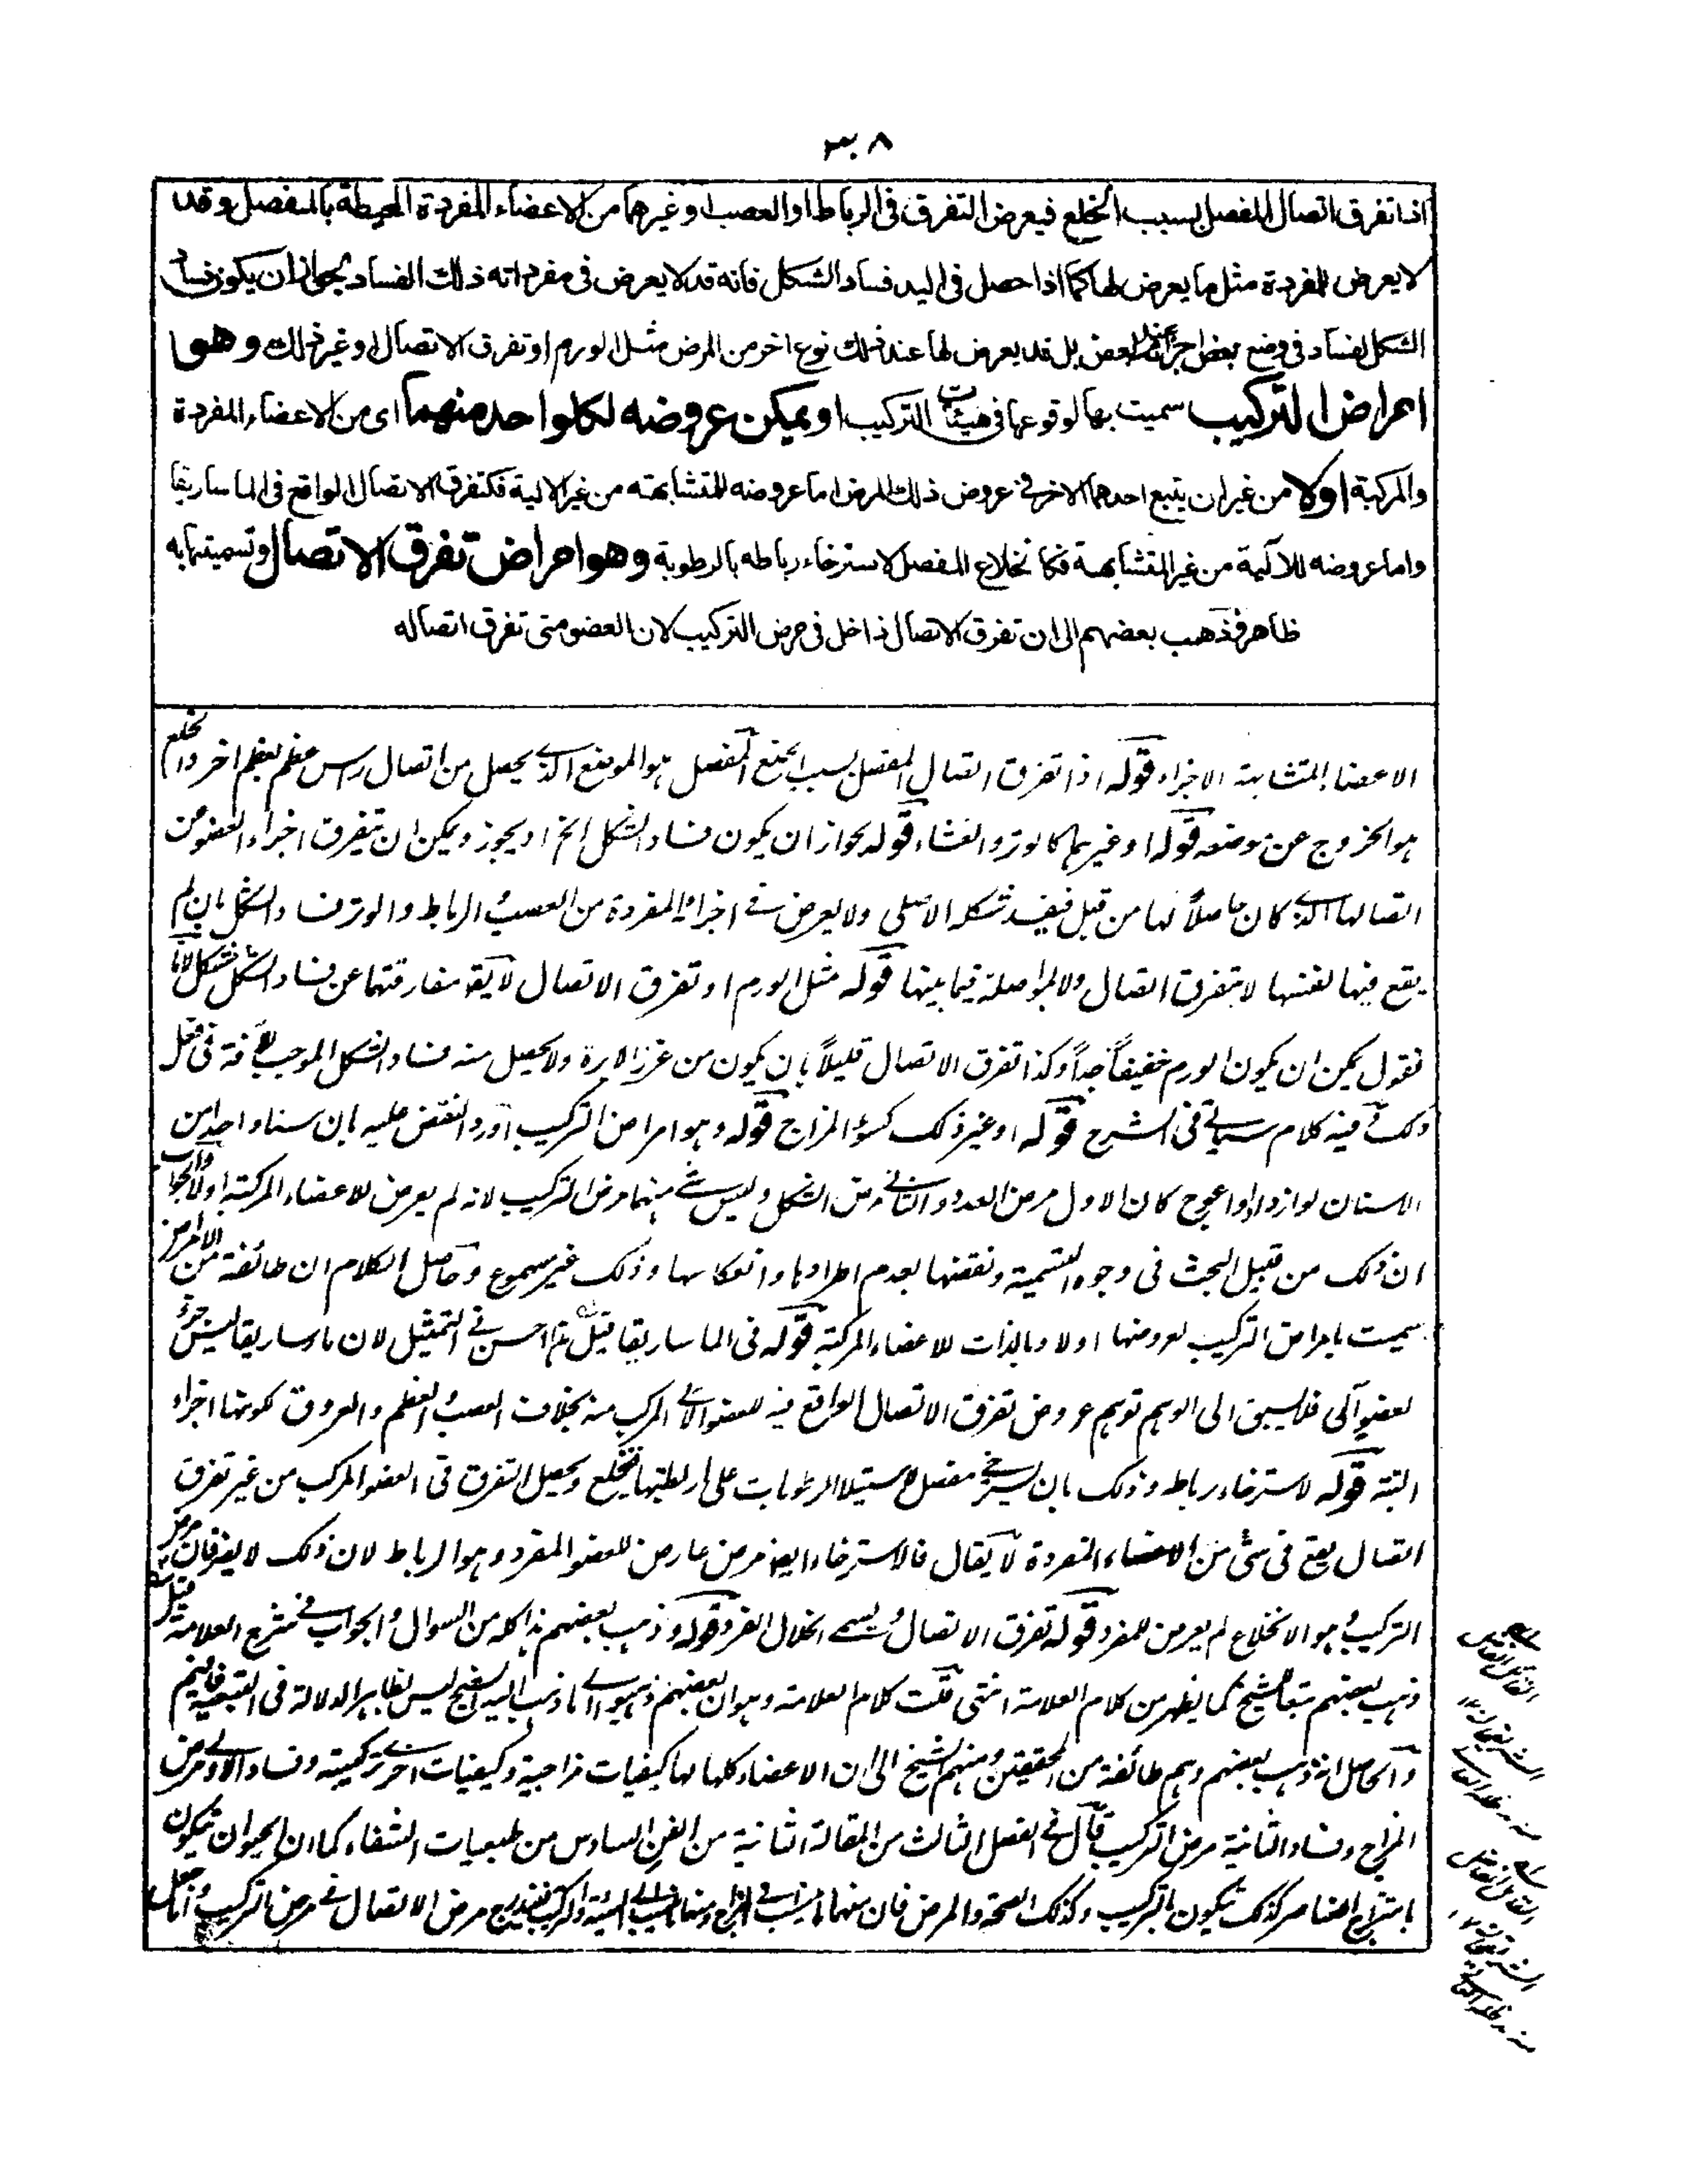 ٣٠٨
اذا تفرق اتصال المفصل بسبب الخلع فيعرض التفرق فى الرباط او العصب او غيرهما من الاعضاء المفردة المحيطة بالمفصل وقد
لا يعرض للمفردة مثل ما يعرض لها كما اذا حصل فى اليد فساد الشكل فانه قد لا يعرض فى مفرداته ذلك الفساد بجواز ان يكون فساد
الشكل لفساد فى وضع بعض اجزائها بل قد يعرض لها عند ذلك نوع اخر من المرض مثل الورم او تفرق الاتصال او غير ذلك وهو
امراض التركيب سميت بها لوقوعها فى هيئات التركيب او يمكن عروضه لكل واحد منهما اى من الاعضاء المفردة
والمركبة اولا من غير ان يتبع احدهما الاخر فى عروض ذلك المرض اما عروضه للمتشابهته من غير الالية فكتفرق الاتصال الواقع فى الماساريقا
واما عروضه للآلية من غير المتشابهة فكانخلاع المفصل لاسترخاء رباطه بالرطوبة وهو امراض تفرق الاتصال وتسميتها به
ظاهر فذهب بعضهم الى ان تفرق الاتصال داخل فى مرض التركيب لان العضو متى تفرق اتصاله
الاعضاء المتشابهة الاجزاء قوله اذا تفرق اتصال المفصل بسبب الخلع المفصل هو الموضع الذى يحصل من اتصال راس عظم بعظم اخر والخلع
هو الخروج عن موضعه قوله او غيرهما كالوتر والغشاء قوله بجواز ان يكون فساد الشكل الخ او يجوز ويمكن ان يتفرق اجزاء العضو عن
اتصالها الذى كان حاصلاً لها من قبل فيفسد شكله الاصلى ولا يعرض فى اجزائه المفردة من العصب والرباط والوتر فساد الشكل بان لم
يقع فيها نفسها لا بتفرق اتصال ولا المواصلة فيما بينها قوله مثل الورم او تفرق الاتصال لا يقال مفارقتهما عن فساد الشكل مشكل لانا
نقول يمكن ان يكون الورم خفيفاً جداً وكذا تفرق الاتصال قليلاً بان يكون من غرز الابرة ولا يحصل منه فساد الشكل الموجب لآفة فى فعل
ولكن فيه كلام سياتى فى الشرح قوله او غير ذلك كسوء المزاج قوله وهو امراض التركيب اورد النقض عليه بان سنا واحدا من
الاسنان لو ازداد او اعوج كان الاول مرض العدد والثانى مرض الشكل وليس شئ منهما مرض التركيب لانه لم يعرض للاعضاء المركبة اولا والجواب
ان ذلك من قبيل البحث فى وجوه التسمية ونقضها بعدم اطرادها وانعكاسها وذلك غير مسموع وحاصل الكلام ان طائفة من الامراض
سميت بامراض التركيب لعروضها اولا وبالذات للاعضاء المركبة قوله فى الماساريقا قيل هذا احسن فى التمثيل لان ماساريقا ليس جزء
لعضو آلى فلا يسبق الى الوهم توهم عروض تفرق الاتصال الواقع فيه للعضو الآلى المركب منه بخلاف العصب والعظم والعروق كونها اجزاء
البتة قوله لاسترخاء رباطه وذلك بان يسترخى مفصل لاستيلاء الرطوبات على اربطتها فتخلع ويحصل التفرق فى العضو المركب من غير تفرق
اتصال يقع فى شئ من الاعضاء المفردة لا يقال فالاسترخاء ايضا مرض عارض للعضو المفرد وهو الرباط لان ذلك لا يضر فان مرض
التركيب وهو الانخلاع لم يعرض للمفرد قوله تفرق الاتصال ويسمى انحلال الفرد قوله وذهب بعضهم هذا كله من السوال والجواب فى شرح العلامة قيل
ذهب بعضهم تبعا للشيخ كما يظهر من كلام العلامة انتهى قلت كلام العلامة وهو ان بعضهم ذهبوا الى ما ذهب اليه الشيخ ليس بظاهر الدلالة فى التبعية فافهم
والحاصل انه ذهب بعضهم وهم طائفة من المحققين ومنهم الشيخ الى ان الاعضاء كلها لها كيفيات مزاجية وكيفيات اخرى تركيبية وفساد الاولى مرض
المزاج وفساد الثانية مرض التركيب قال فى الفصل الثالث من المقالة الثانية من الفن السادس من طبعيات الشفاء كما ان الحيوان تيكون
بامتزاج العناصر كذلك تيكون بالتركيب وكذلك الصحة والمرض فان منهما ما ينسب الى المزاج ومنهما ما ينسب الى الهيئة والتركيب فيندرج مرض الاتصال فى مرض التركيب